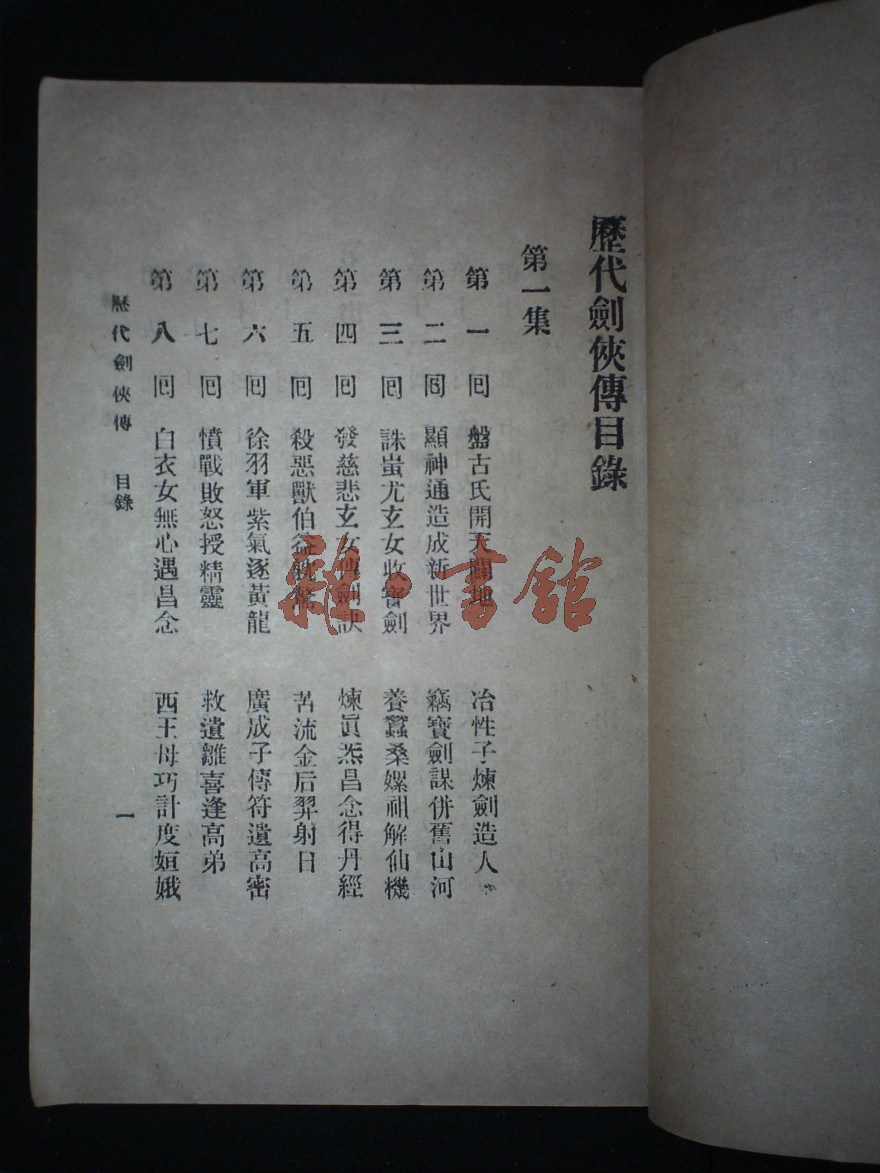 歷代劍俠傳目錄
第一集
第一回 盤古氏開天闢地 冶性子煉劍造人
第二回 顯神通造成新世界 竊寶劍謀併舊山河
第三回 誅蚩尤玄女收寶劍 養蠶桑嫘祖解仙機
第四回 發慈悲玄女傳劍訣 煉眞炁昌念得丹經
第五回 殺惡獸伯益 流金后羿射日
第六回 徐羽軍紫氣逐黃龍 廣成子傳符遺高密
第七回 憤戰敗怒授精靈 救遺雛喜逢高弟
第八回 白衣女無心遇昌念 西王母巧計度姮娥
歷代劍俠傳 目錄 一
雜·書館